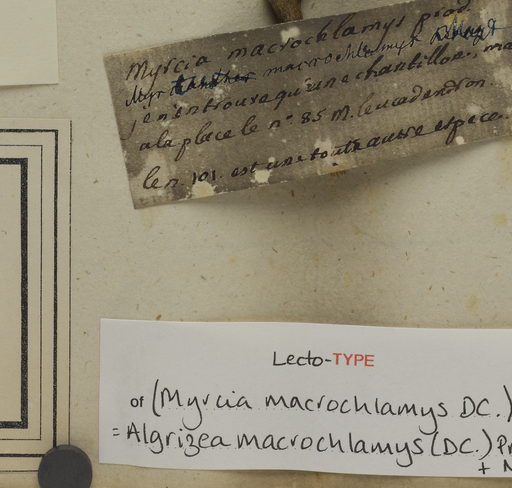 Myrcia macrochlamys prod.
macrochlamys
j en'entrouve qu'un echantillon, ma
ala place le n° 85 M. leucadendron.
le n 101. est une toute autre espece.
Lecto-TYPE
of (Myrcia macrochlamys DC.)
= Algrizea macrochlamys (DC.) Pr
+ N